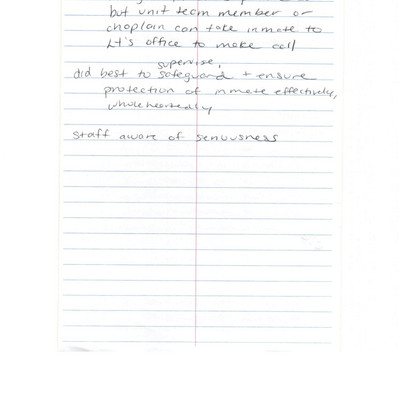 but unit team member or
chaplain can take inmate to
Lt's office to make call
supervise,
did best to safeguard + ensure
protection of inmate effectively,
wholeheartedly
staff aware of seriousness